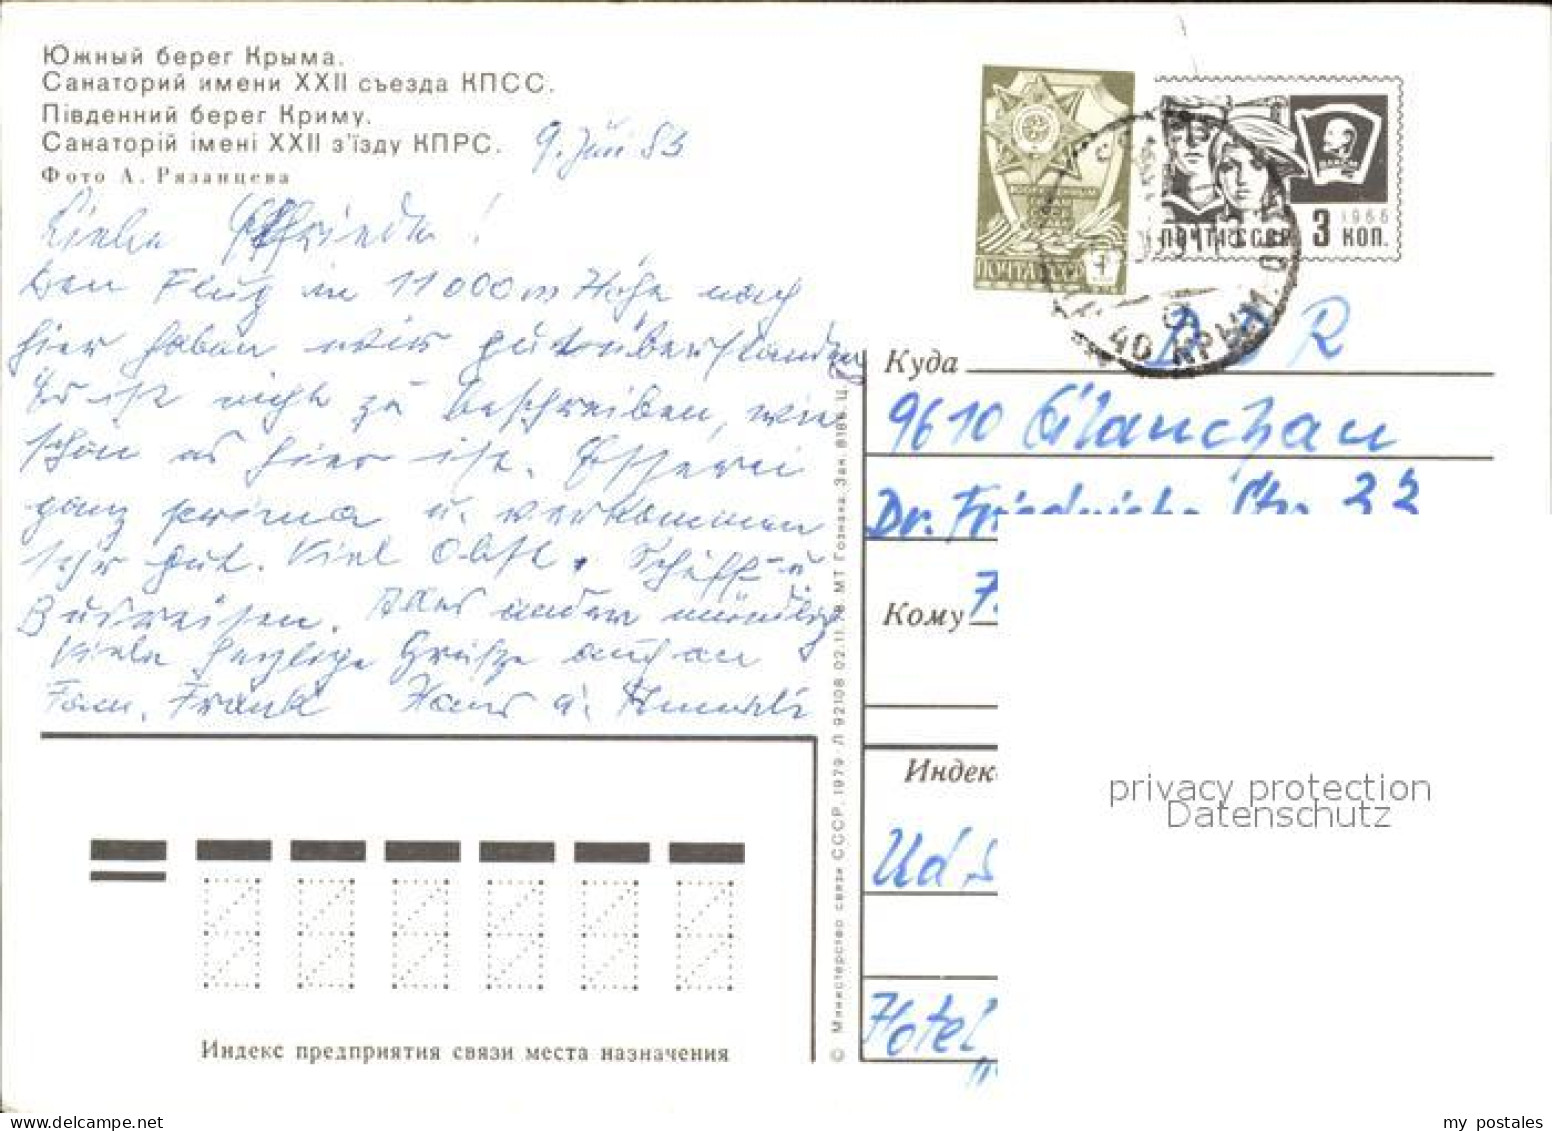 Южный берег Крыма.
Санаторий имени XXII съезда КПСС.
Південний берег Криму.
Санаторій імені XXII з'їзду КПРС.
Фото А. Рязанцева
9. Juni 83
Liebe Elfriede!
Den Flug in 11000 m Höhe nach
hier haben wir gut überstanden
Es ist nicht zu beschreiben, wie
schön es hier ist. Esserei
ganz prima u. wir bekommen
sehr gut. Viel Obst. Schiff- u.
Busreisen. Alles andere mündlich
Viele herzliche Grüße auch an
Fam. Frank Hans u.
ПОЧТА СССР
ПОЧТА СССР 3 КОП.
1966
40 КРЫМ. ОБЛ
Куда DDR
9610 Glauchau
Dr. Friedrichs Str. 22
Кому
Индек
UdS
Hotel
privacy protection
Datenschutz
Индекс предприятия связи места назначения
© Министерство связи СССР, 1979 Л 92108 02.11.78. МТ Гознака. Зак. 8186. Ц.
my postales